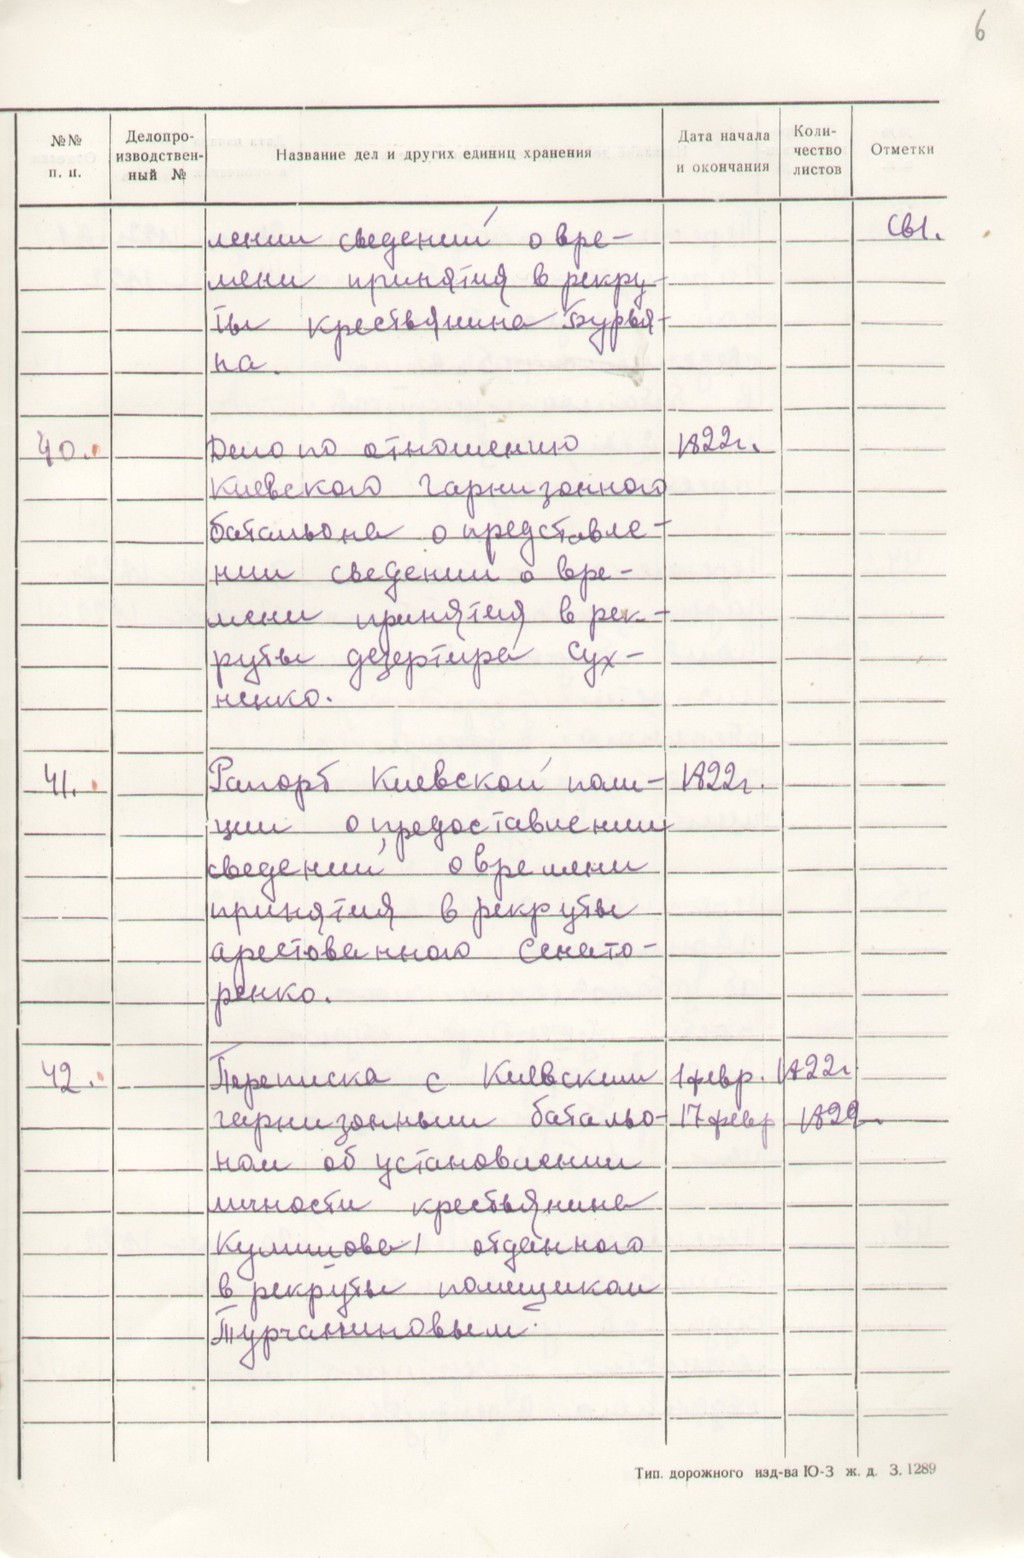 6
№№ п. п.
Делопро-
изводствен-
ный №
Название дел и других единиц хранения
Дата начала
и окончания
Коли-
чество
листов
Отметки
лении сведений о вре- св1.
мени принятия в рекру-
ты крестьянина Бурья-
на.
40. Дело по отношению 1822г.
Киевского гарнизонного
батальона о представле-
нии сведении о вре-
мени принятия в рек-
руты дезертира Сух-
ненко.
41. Рапорт Киевской поли- 1822г.
ции о предоставлении
сведений о времени
принятия в рекруты
арестованного Сенато-
ренко.
42. Переписка с Киевским 1 февр. 1822г
гарнизонным батальо- 17 февр 1822
ном об установлении
личности крестьянина
отданного
в рекруты помещиком
Турчаниновым.
Тип. дорожного изд-ва Ю-З ж. д. З. 1289